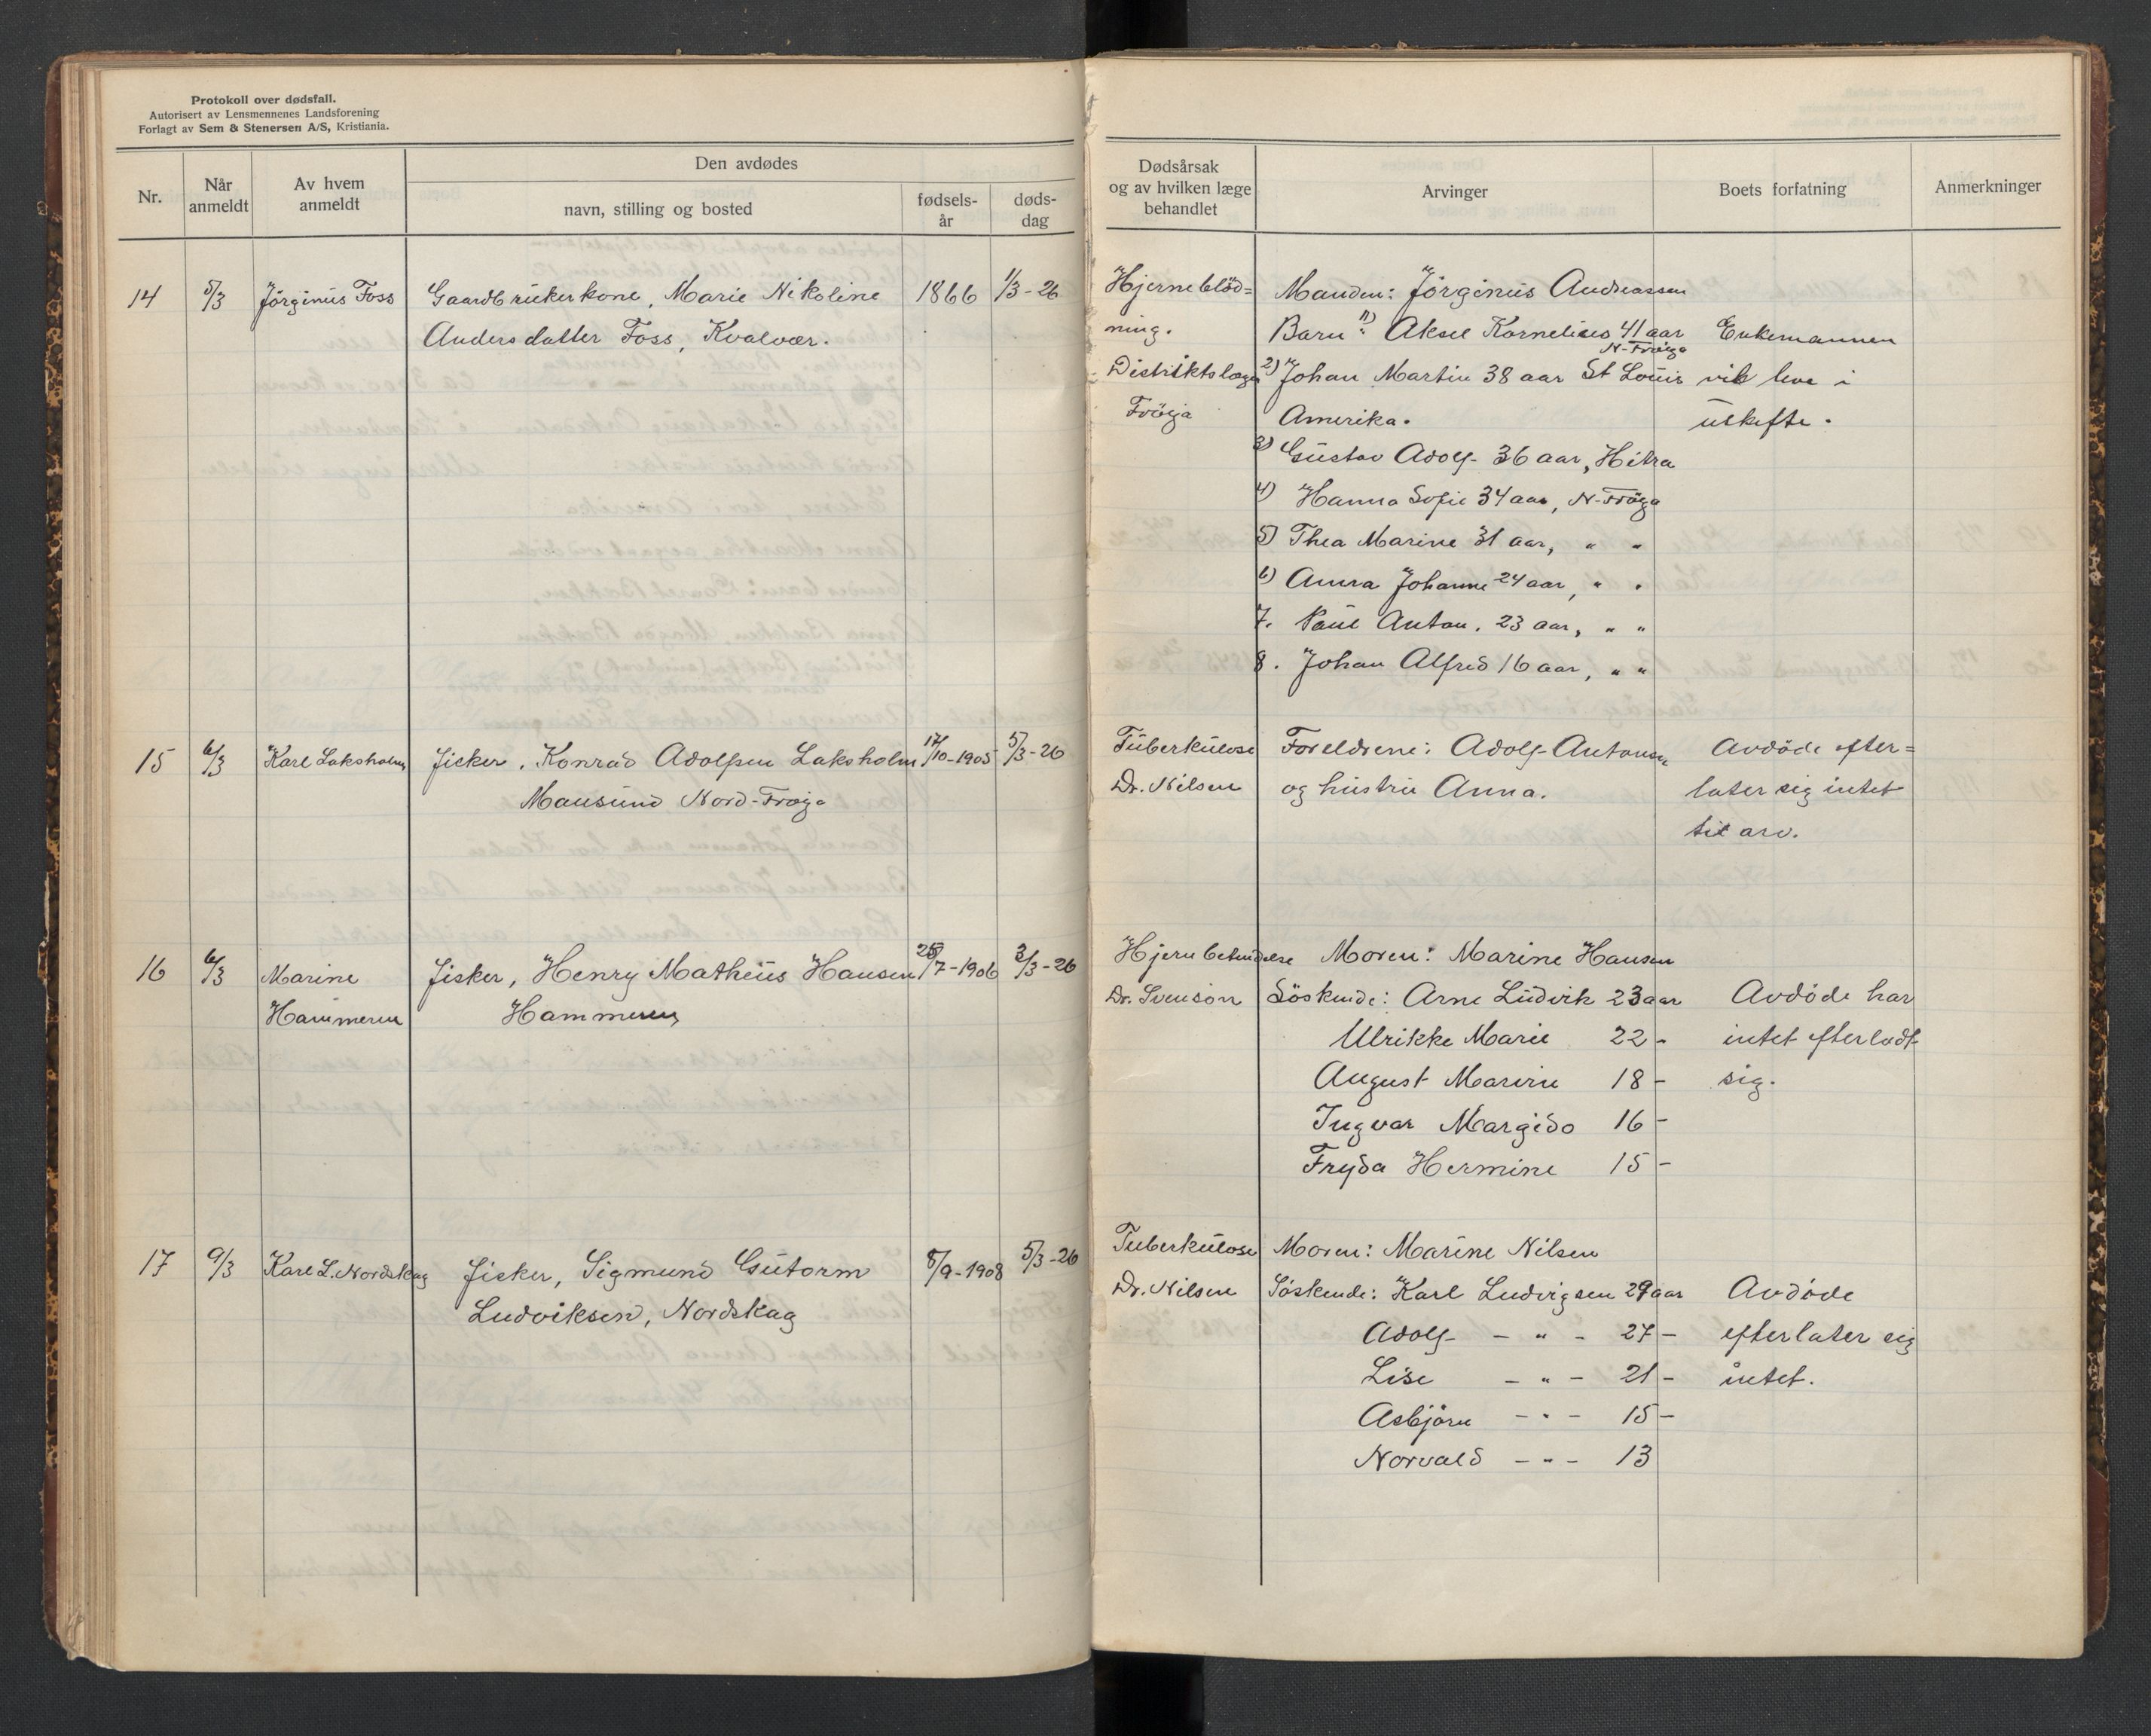 Protokoll over dødsfall.
Autorisert av Lensmennenes Landsforening
Forlagt av Sem & Stenersen A/S, Kristiania.
Nr.
Når anmeldt
Av hvem anmeldt
Den avdødes
navn, stilling og bosted
fødsels-år
døds-dag
Dødsårsak
og av hvilken læge
behandlet
Arvinger
Boets forfatning
Anmerkninger
14 5/3 Jörginus Foss Gaardbrukerkone, Marie Nikoline 1866 1/3-26
Andersdatter Foss, Kvalvær.
Hjerneblöd=
ning.
Distriktslægen
Fröya
Manden: Jörginus Andreassen
Barn: 1) Aksel Kornelius 41 aar
N-Fröya
2) Johan Martin 38 aar St Louis
Amerika.
3) Gustav Adolf 36 aar, Hitra
4) Hanna Sofie 34 aar, N-Fröya
5) Thea Marine 31 aar, " "
6) Anna Johanne 24 aar, " "
7. Paul Anton. 23 aar, " "
8. Johan Alfred 16 aar, " "
Enkemannen
vil leve i
uskifte.
15 6/3 Karl Laksholm Fisker, Konrad Adolfsen Laksholm 17/10-1905 5/3-26
Mausund Nord-Fröya
Tuberkulose
Dr. Nilsen
Foreldrene: Adolf Antonsen
og hustru Anna.
Avdöde efter=
later sig intet
til arv.
16 6/3 Marine Fisker, Henry Matheus Hansen 25/7-1906 3/3-26
Hammeren Hammeren
Hjernebetendelse
Dr. Svenson
Moren: Marine Hansen
Söskende: Arne Ludvik 23 aar
Ulrikke Marie 22 -
August Marin 18 -
Ingvar Margido 16 -
Fryda Hermine 15 -
Avdöde har
intet efterladt
sig.
17 9/3 Karl L. Nordskag Fisker, Sigmund Gutorm 8/9-1908 5/3-26
Ludviksen, Nordskag
Tuberkulose
Dr. Nilsen
Moren: Marine Nilsen
Söskende: Karl Ludvigsen 29 aar
Adolf - " - 27 -
Lise - " - 21 -
Asbjörn - " - 15 -
Norvald - " - 13
Avdöde
efterlater sig
intet.